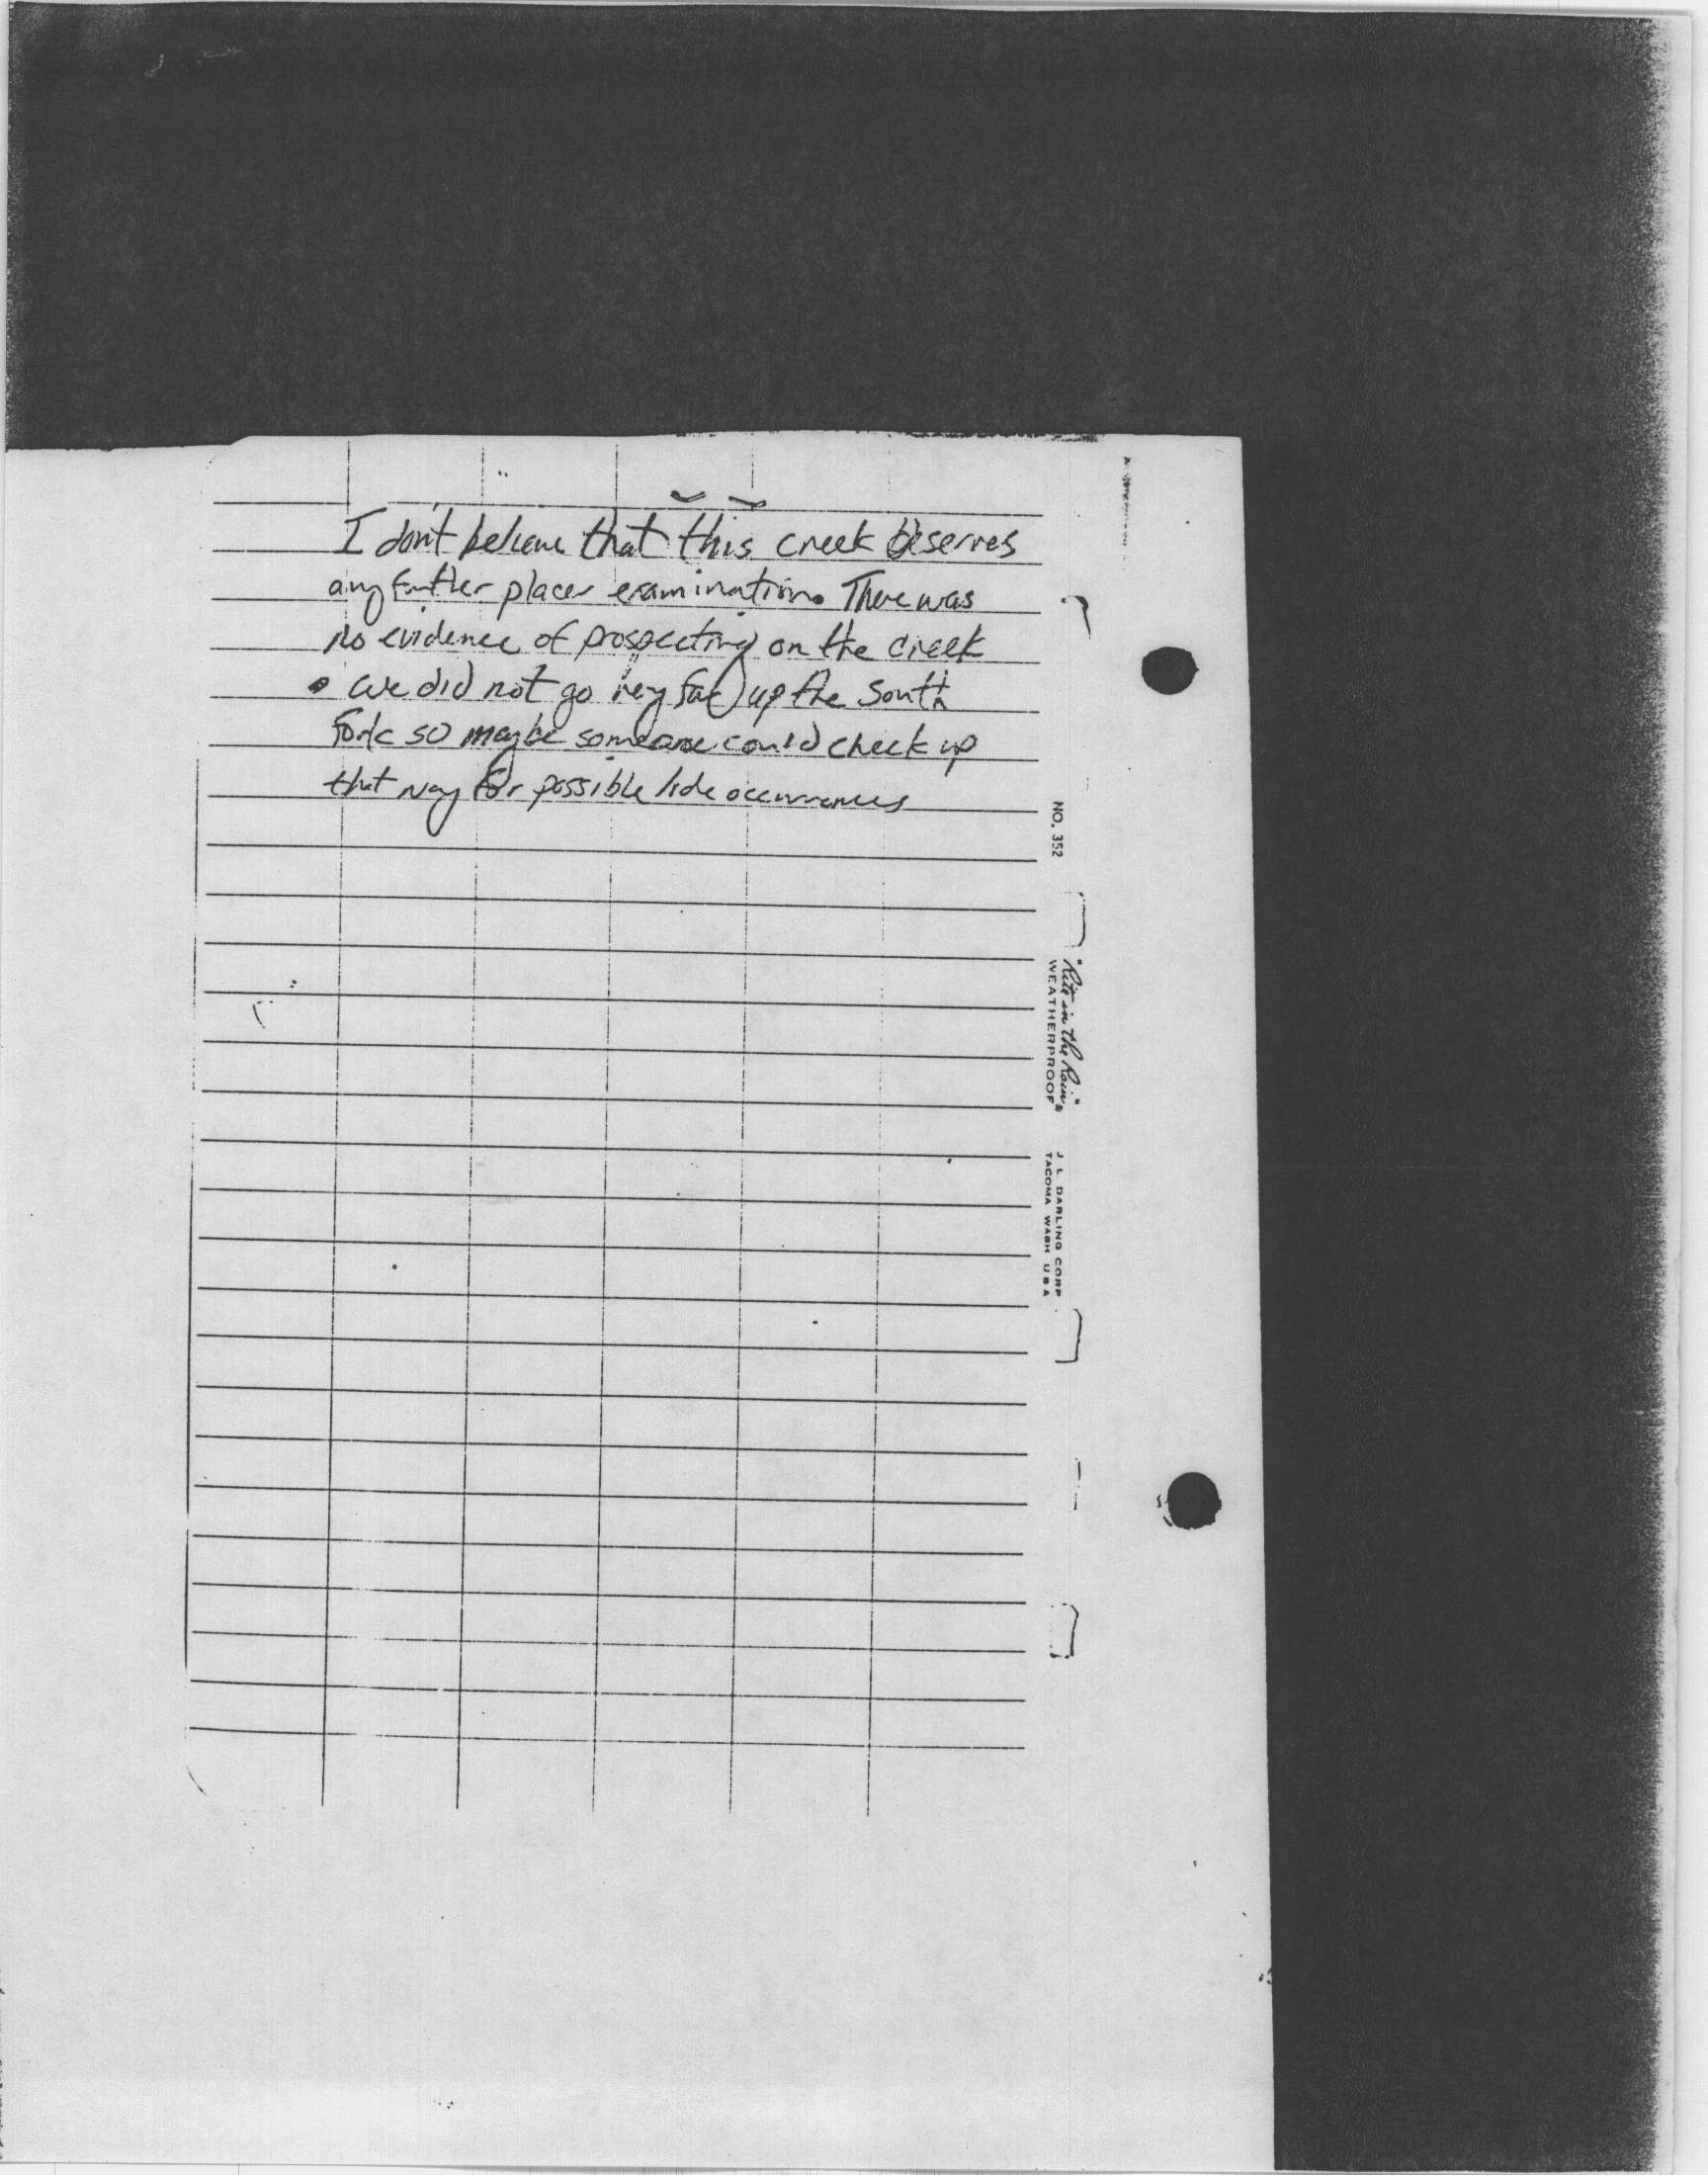 I don't believe that this creek deserves
any further placer examination. There was
no evidence of prospecting on the creek
• we did not go very far up the South
Fork so maybe someone could check up
that way for possible lode occurrences
NO. 352
"Rite in the Rain"
WEATHERPROOF
J. L. DARLING CORP
TACOMA WASH U S A